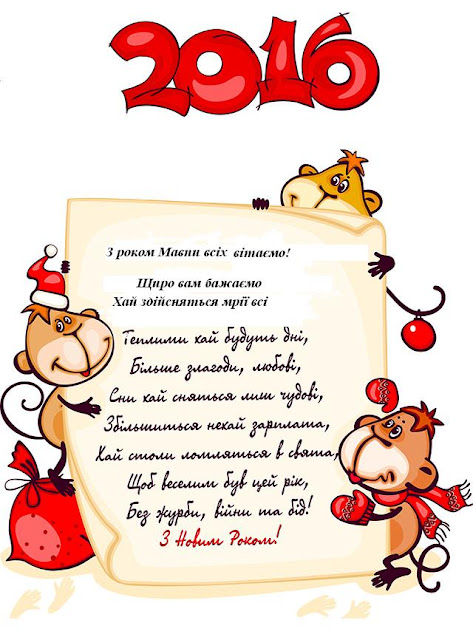 2016
З роком Мавпи всіх вітаємо!
Щиро вам бажаємо
Хай здійсняться мрії всі
Теплими хай будуть дні,
Більше злагоди, любові,
Сни хай сняться лиш чудові,
Збільшиться нехай зарплата,
Хай столи ломляться в свята,
Щоб веселим був цей рік,
Без журби, війни та бід!
З Новим Роком!